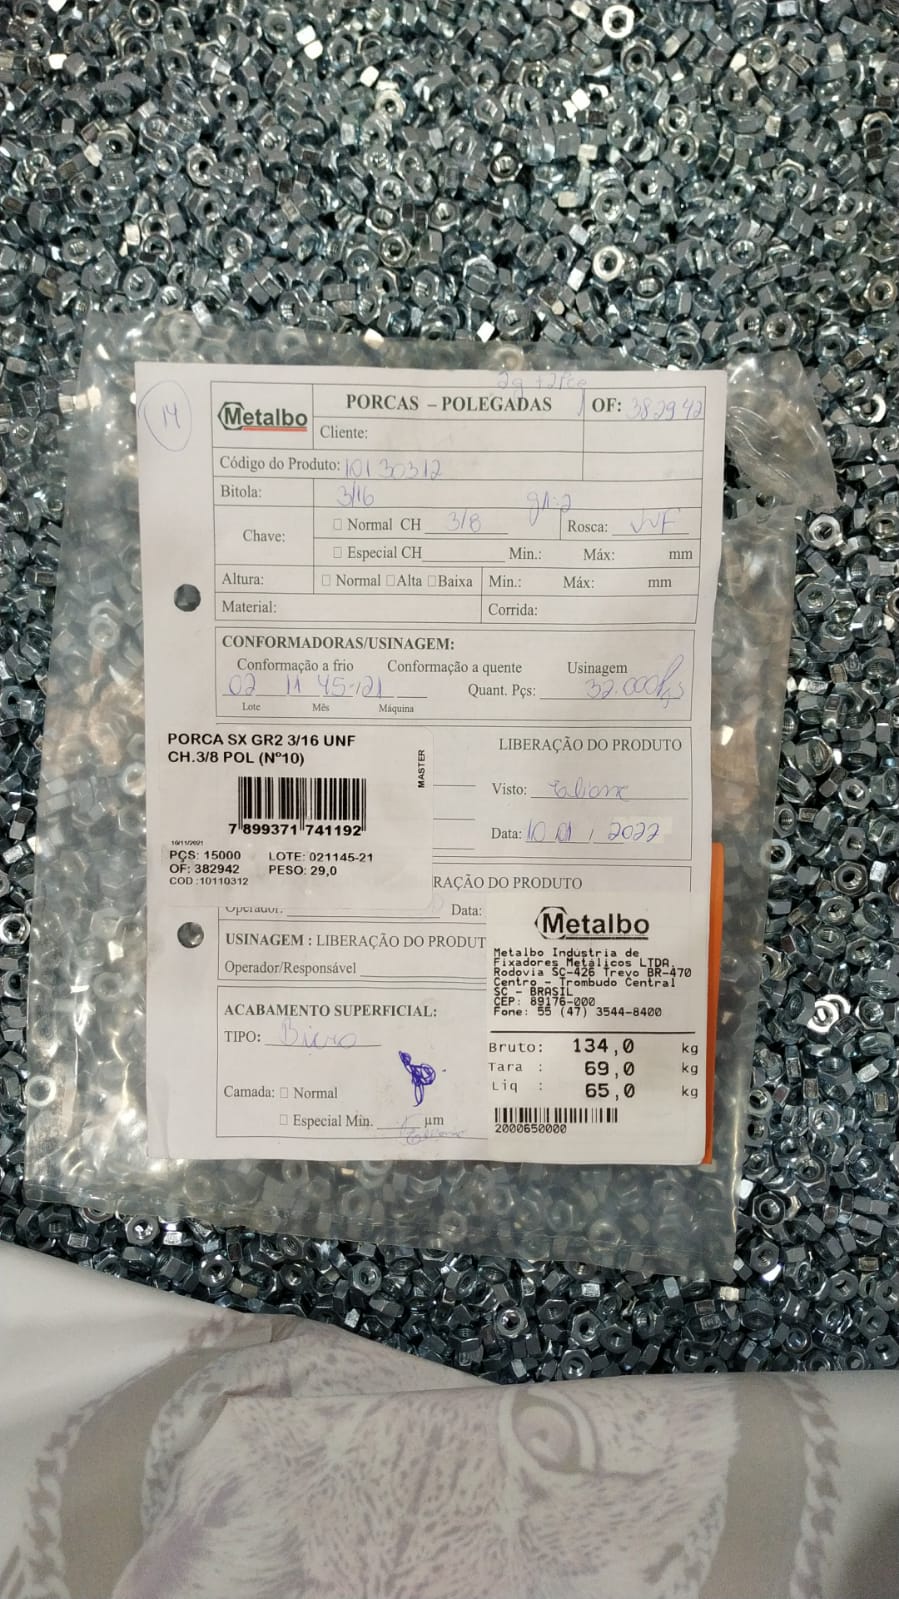 14
Metalbo
PORCAS – POLEGADAS
OF: 382942
Cliente:
Código do Produto: 10130312
Bitola: 3/16 gr:2
Chave:
Normal CH 3/8 Rosca: UNF
Especial CH Min.: Máx: mm
Altura: Normal Alta Baixa Min.: Máx: mm
Material: Corrida:
CONFORMADORAS/USINAGEM:
Conformação a frio Conformação a quente Usinagem
02 11 45-21 Quant. Pçs: 32.000
Lote Mês Máquina
PORCA SX GR2 3/16 UNF
CH.3/8 POL (Nº10)
MASTER
7 899371 741192
16/11/2021
PÇS: 15000 LOTE: 021145-21
OF: 382942 PESO: 29,0
COD :10110312
LIBERAÇÃO DO PRODUTO
Visto: Eliane
Data: 10 01 , 2022
RAÇÃO DO PRODUTO
Operador: Data:
USINAGEM : LIBERAÇÃO DO PRODUT
Operador/Responsável
ACABAMENTO SUPERFICIAL:
TIPO:
Camada: Normal
Especial Min. µm
Metalbo
Metalbo Indústria de
Fixadores Metálicos LTDA
Rodovia SC-426 Trevo BR-470
Centro - Trombudo Central
SC - BRASIL
CEP: 89176-000
Fone: 55 (47) 3544-8400
Bruto: 134,0 kg
Tara : 69,0 kg
Liq : 65,0 kg
2000650000